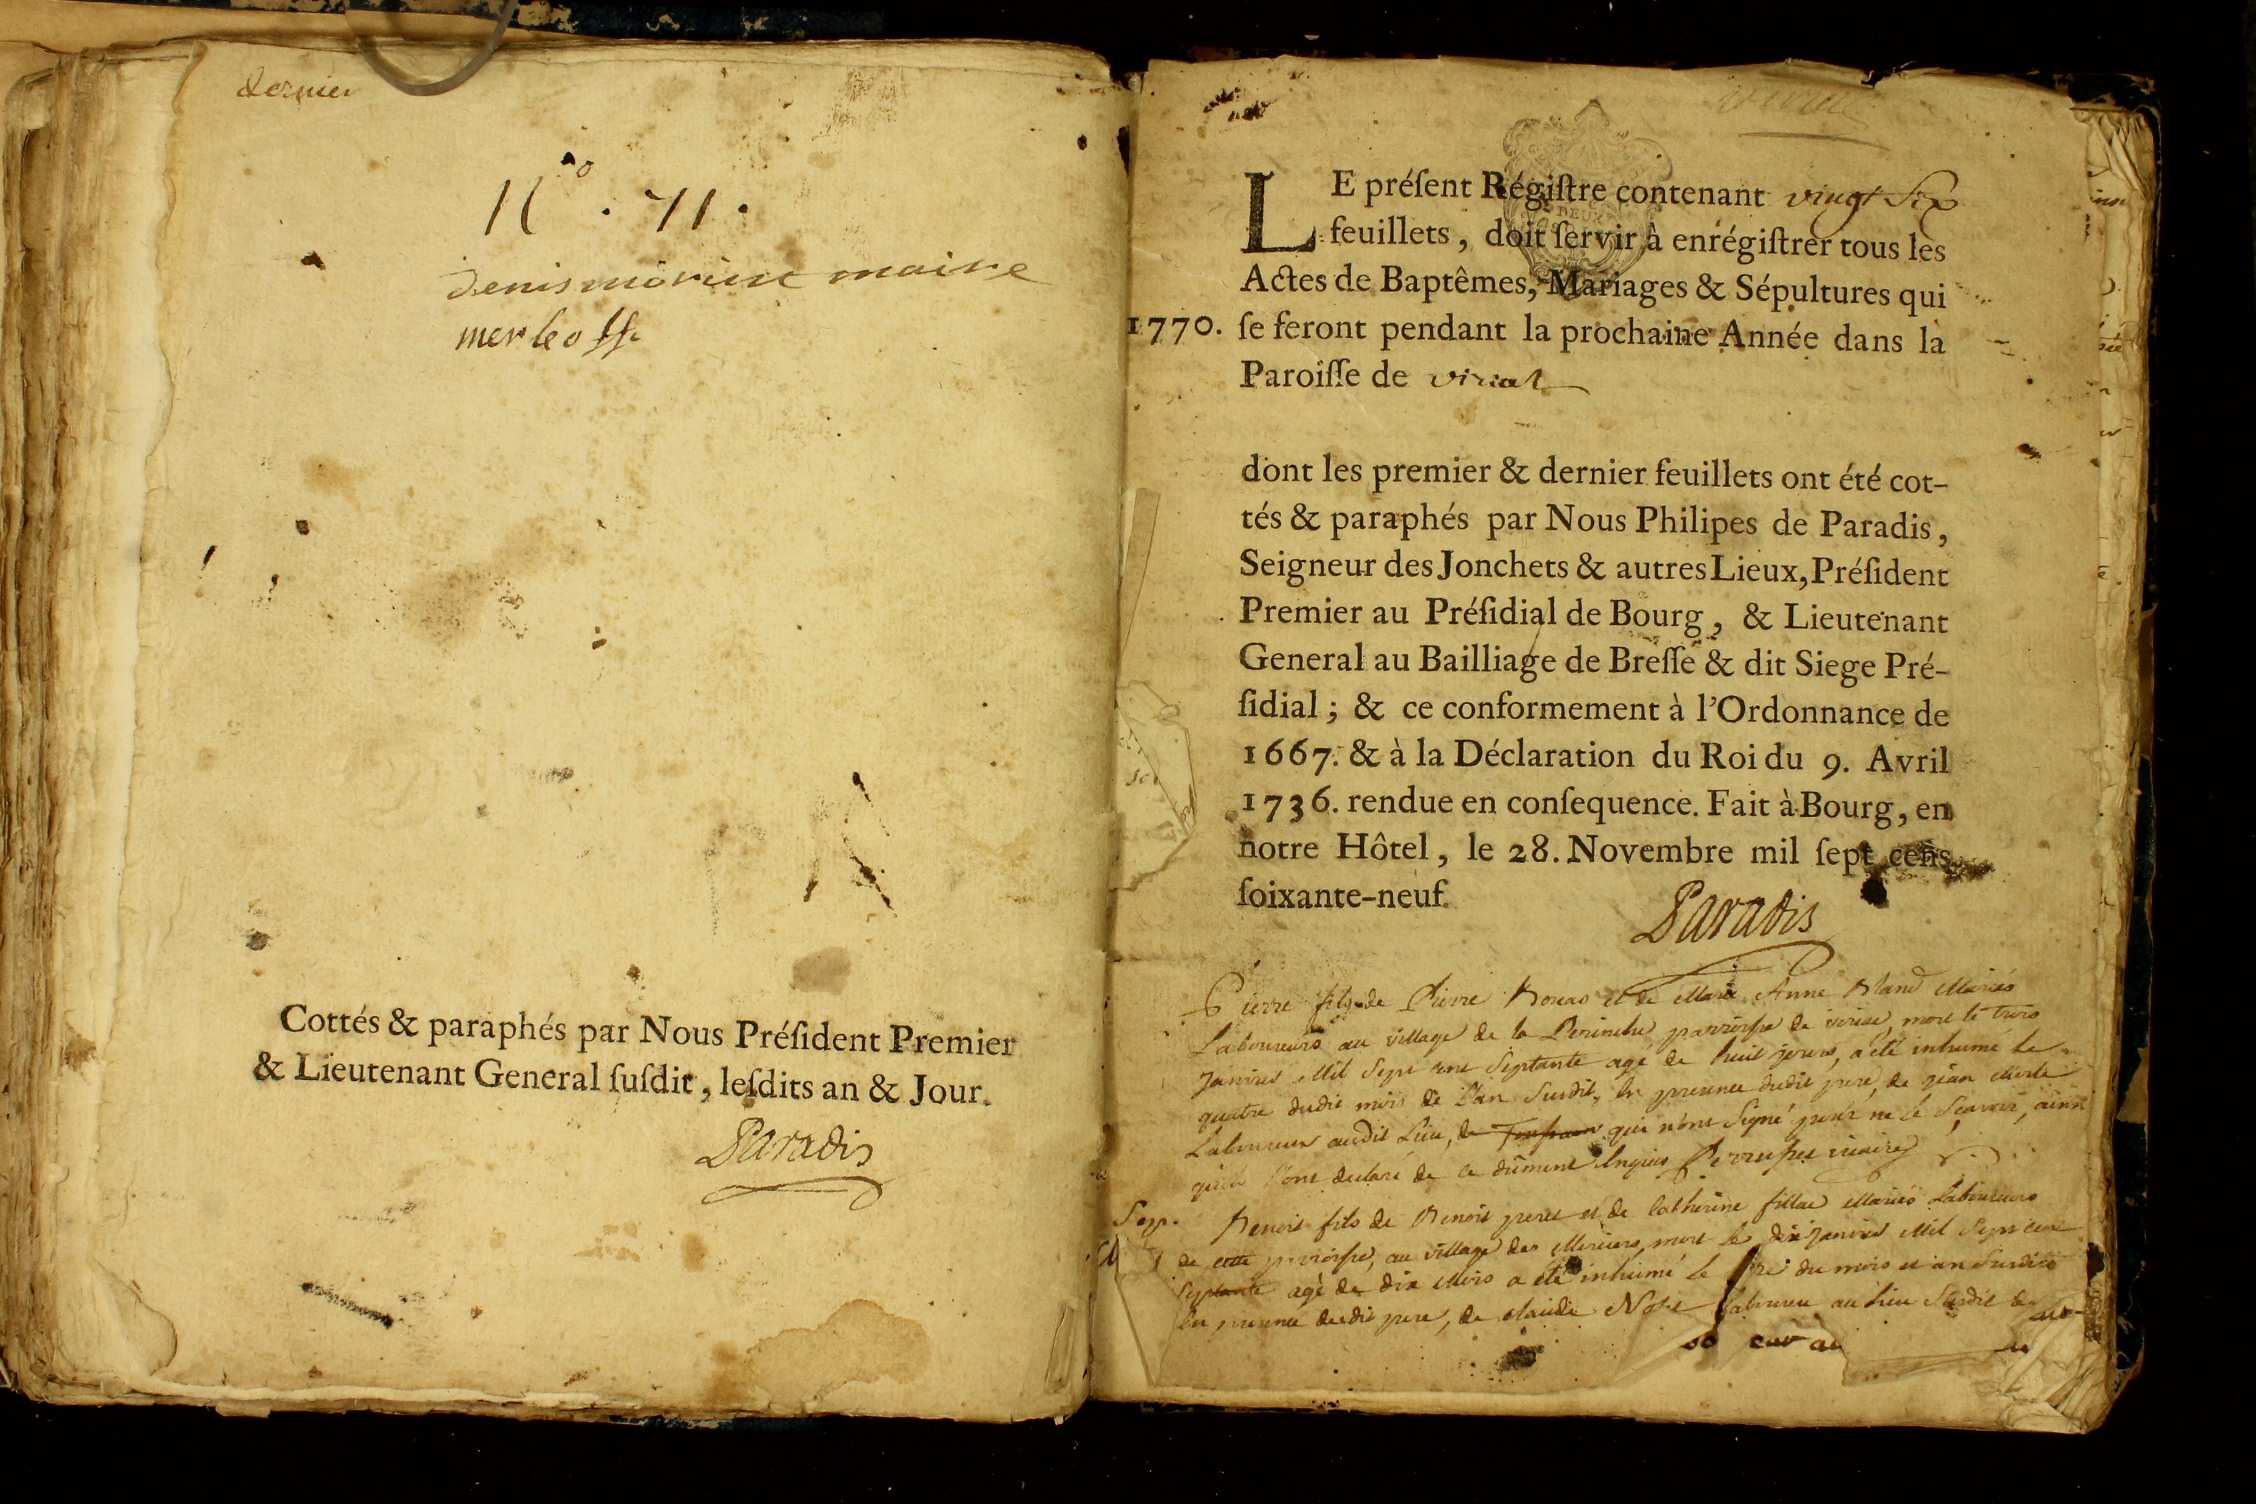 dernier
N.º 71.
denis morin maire
merle off.
Cottés & paraphés par Nous Préſident Premier
& Lieutenant General ſuſdit, leſdits an & Jour.
Paradis
LE préſent Régiſtre contenant vingt Six
feuillets, doit ſervir à enrégiſtrer tous les
Actes de Baptêmes, Mariages & Sépultures qui
1770. ſe feront pendant la prochaine Année dans la
Paroiſſe de viriat
dont les premier & dernier feuillets ont été cot-
tés & paraphés par Nous Philipes de Paradis,
Seigneur des Jonchets & autres Lieux, Préſident
Premier au Préſidial de Bourg, & Lieutenant
General au Bailliage de Breſſe & dit Siege Pré-
ſidial; & ce conformement à l'Ordonnance de
1667. & à la Déclaration du Roi du 9. Avril
1736. rendue en conſequence. Fait à Bourg, en
notre Hôtel, le 28. Novembre mil ſept cens
ſoixante-neuf.
Paradis
Pierre fils de Pierre et de Marie Anne Mariés
Laboureurs au village de la parroisse de mort le trois
janvier Mil Sept cent Septante agé de huit jours, a été inhumé le
quatre dudit mois de L'an Susdit, en presence dudit pere, de jean Merle
Laboureur audit Lieu, qui n'ont Signé pour ne le Sçavoir, ainsi
qu'ils l'ont declaré de ce dûment Enquis vicaire
Sep. Benoit fils de Benoit perret et de Catherine fillae Mariés Laboureurs
de cette parroisse, au village des mort le dix janvier Mil Sept cent
Septante agé de dix Mois a été inhumé le du mois et an Susdits
En presence dudit pere, de claude Laboureur au Lieu Susdit